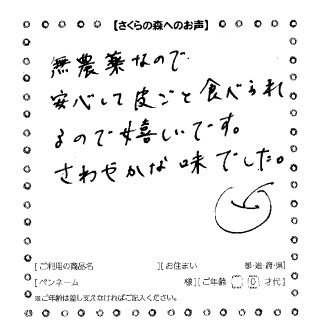 【さくらの森へのお声】
無農薬なので
安心して皮ごと食べられ
るので嬉しいです。
さわやかな味でした。
[ご利用の商品名 ][お住まい 都・道・府・県]
[ペンネーム 様][ご年齢 0 才代]
※ご年齢は差し支えなければご記入ください。